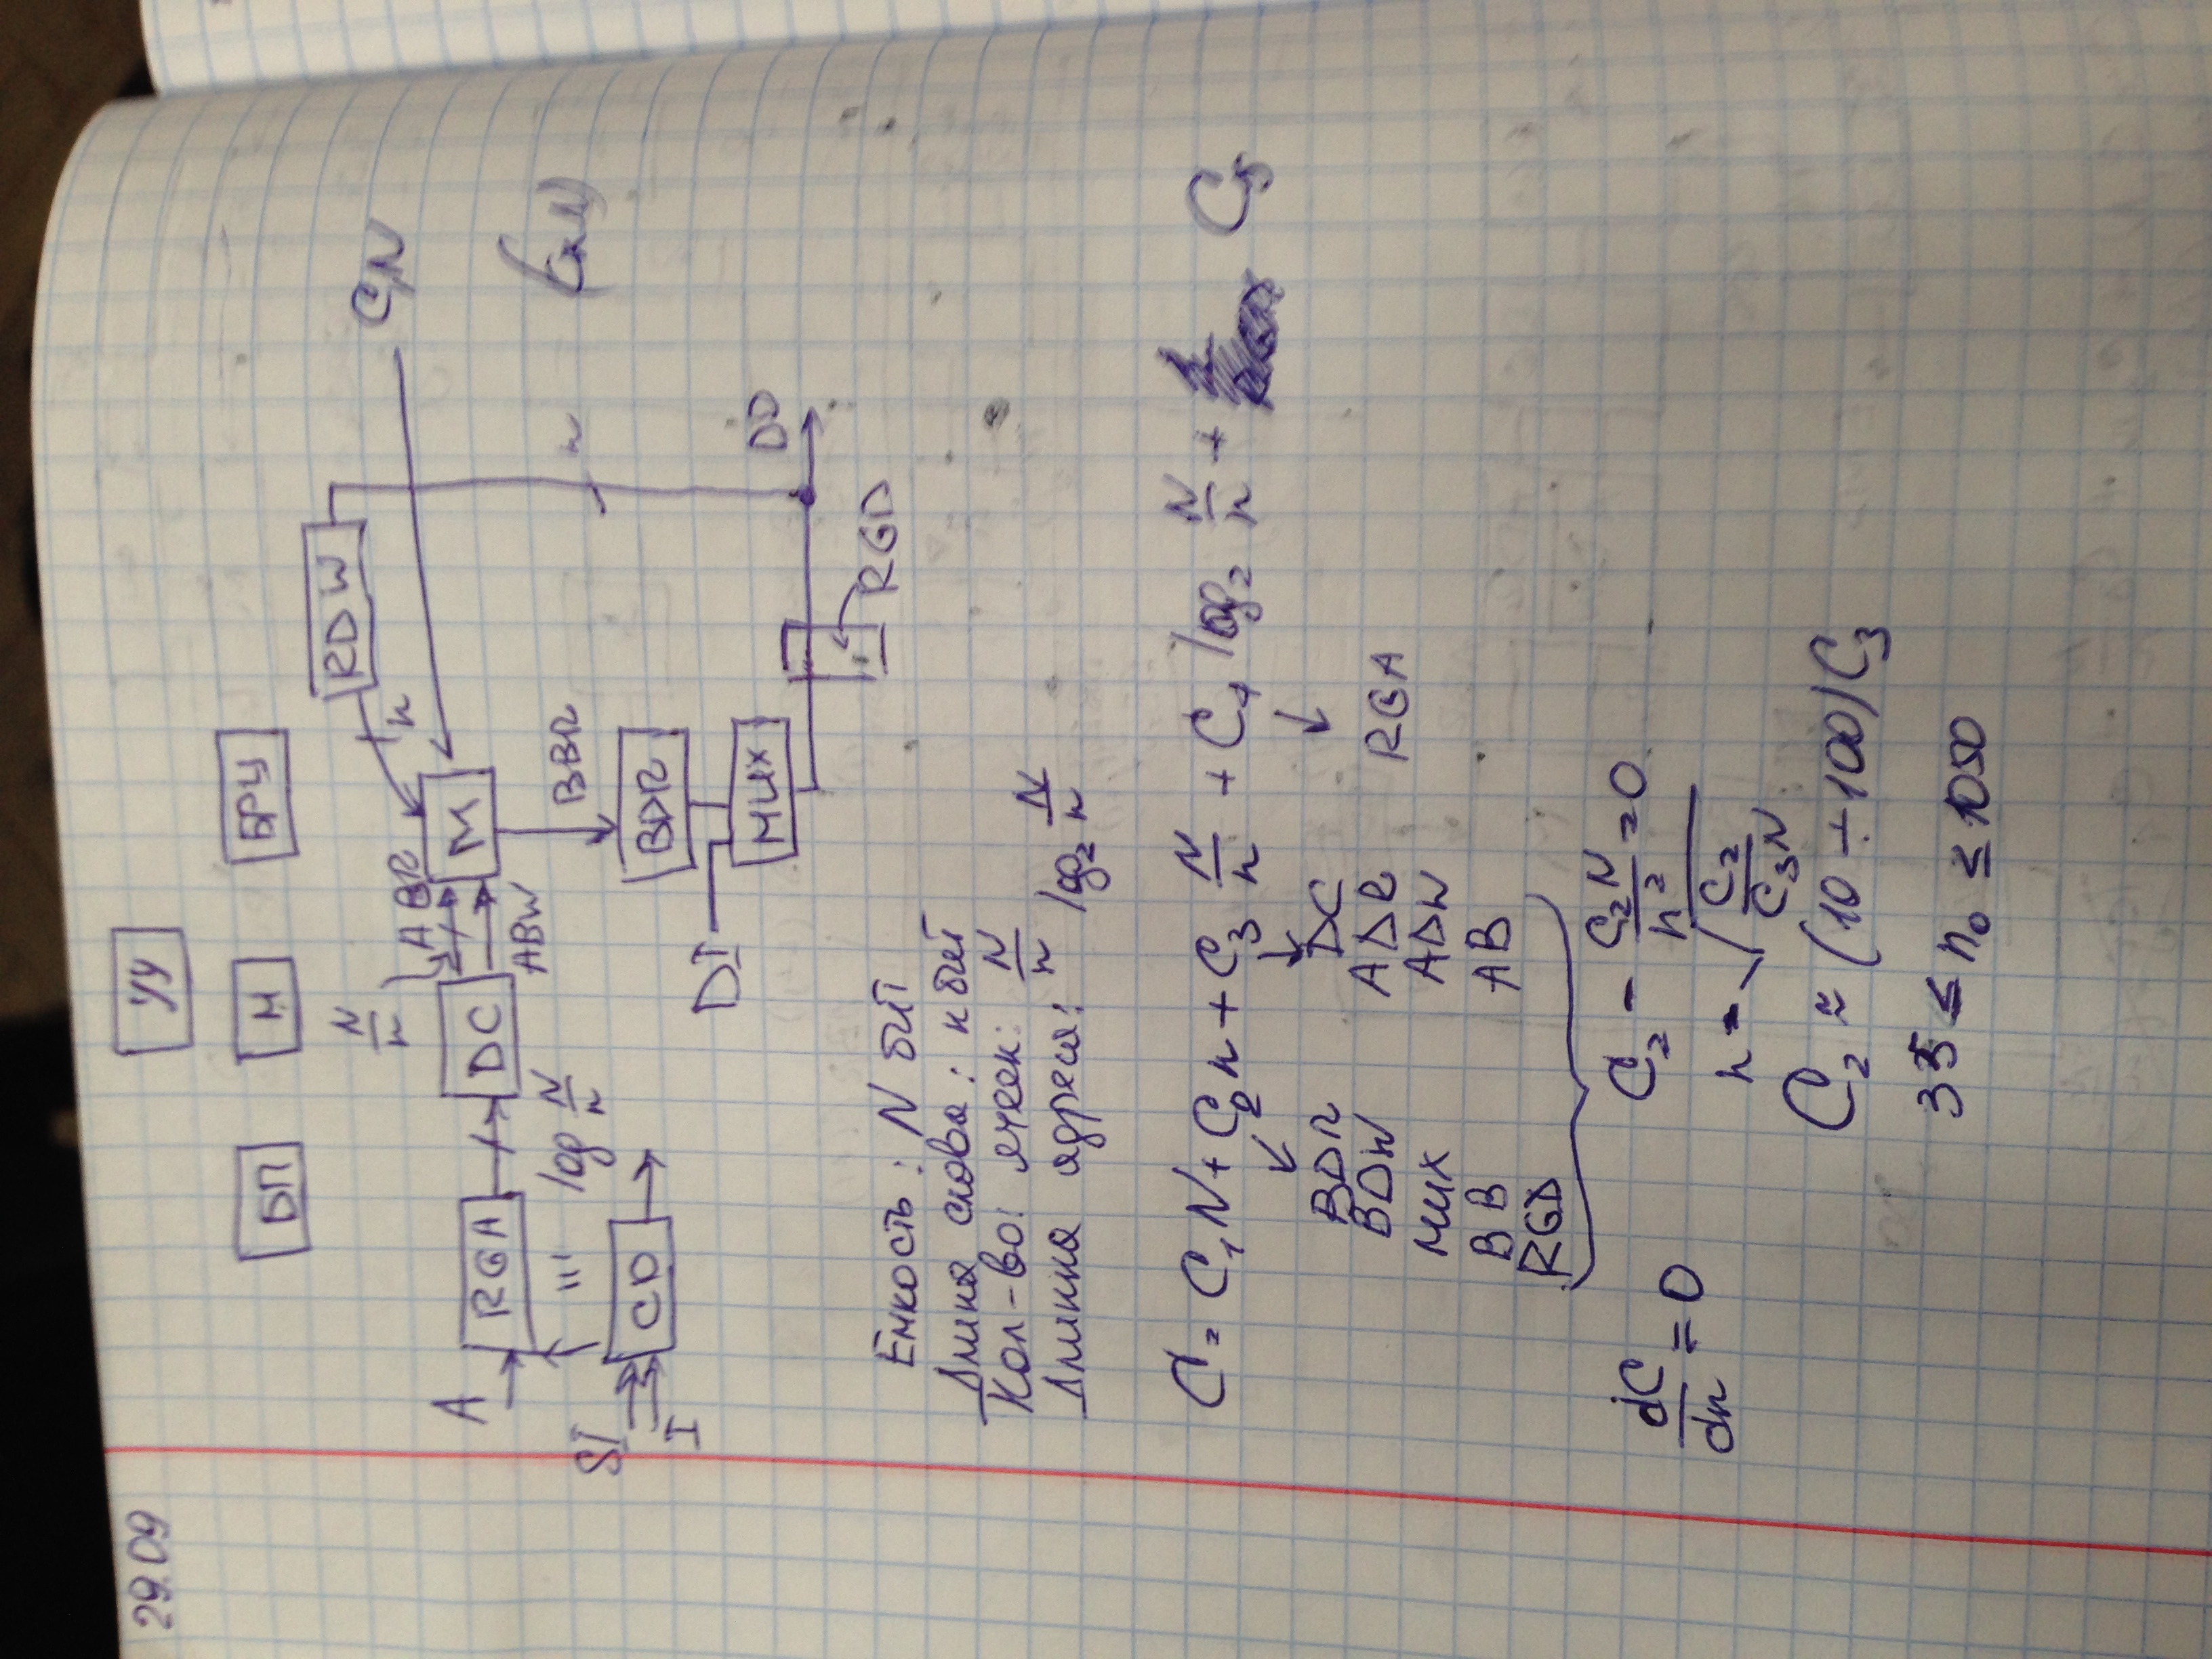 29.09
УУ
БП М БРЧ
RDW
N/n
n
C₁N
ABR
A
RGA DC М
ABW
log N/n
BBR
n
SI
I
CD
BDR
DI
МИХ
DO
RGD
Емкость: N бит
Длина слова: n бит
Кол-во: ячеек: N/n
Длинна адреса: log₂ N/n
C = C₁N + C₂n + C₃ N/n + C₄ log₂ N/n + C₅
BDR DC
BDW ADR RGA
МИХ ADW
BB AB
RGD
dC/dn = 0
C₂ - C₂N/n² = 0
n = √(C₂/C₃N)
C₂ ≈ (10 ÷ 100) C₃
35 ≤ n₀ ≤ 1050